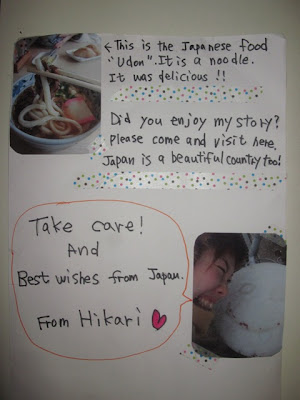 ← This is the Japanese food
"Udon". It is a noodle.
It was delicious !!
Did you enjoy my story?
Please come and visit here.
Japan is a beautiful country too!
Take care!
And
Best wishes from Japan.
From Hikari ♥